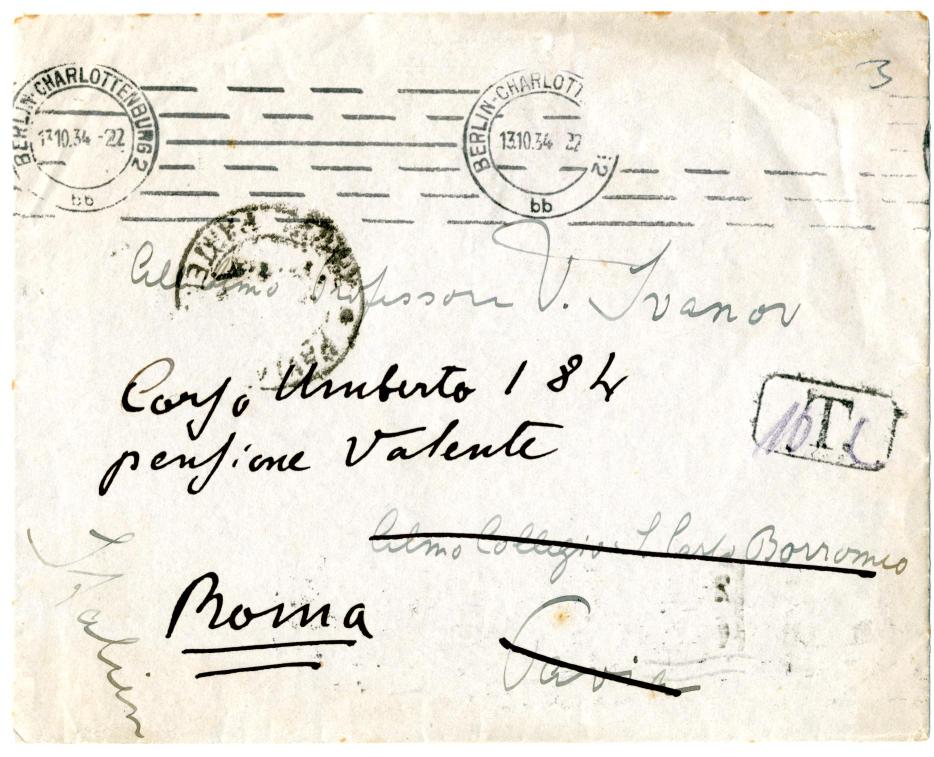 3
BERLIN-CHARLOTTENBURG 2
13.10.34 -22
bb
BERLIN-CHARLOTT 2
13.10.34 22
bb
Professore V. Ivanov
Corso Umberto 184
pensione Valente
T
Almo Collegio S Carlo Borromeo
Roma
Pavia
Italien